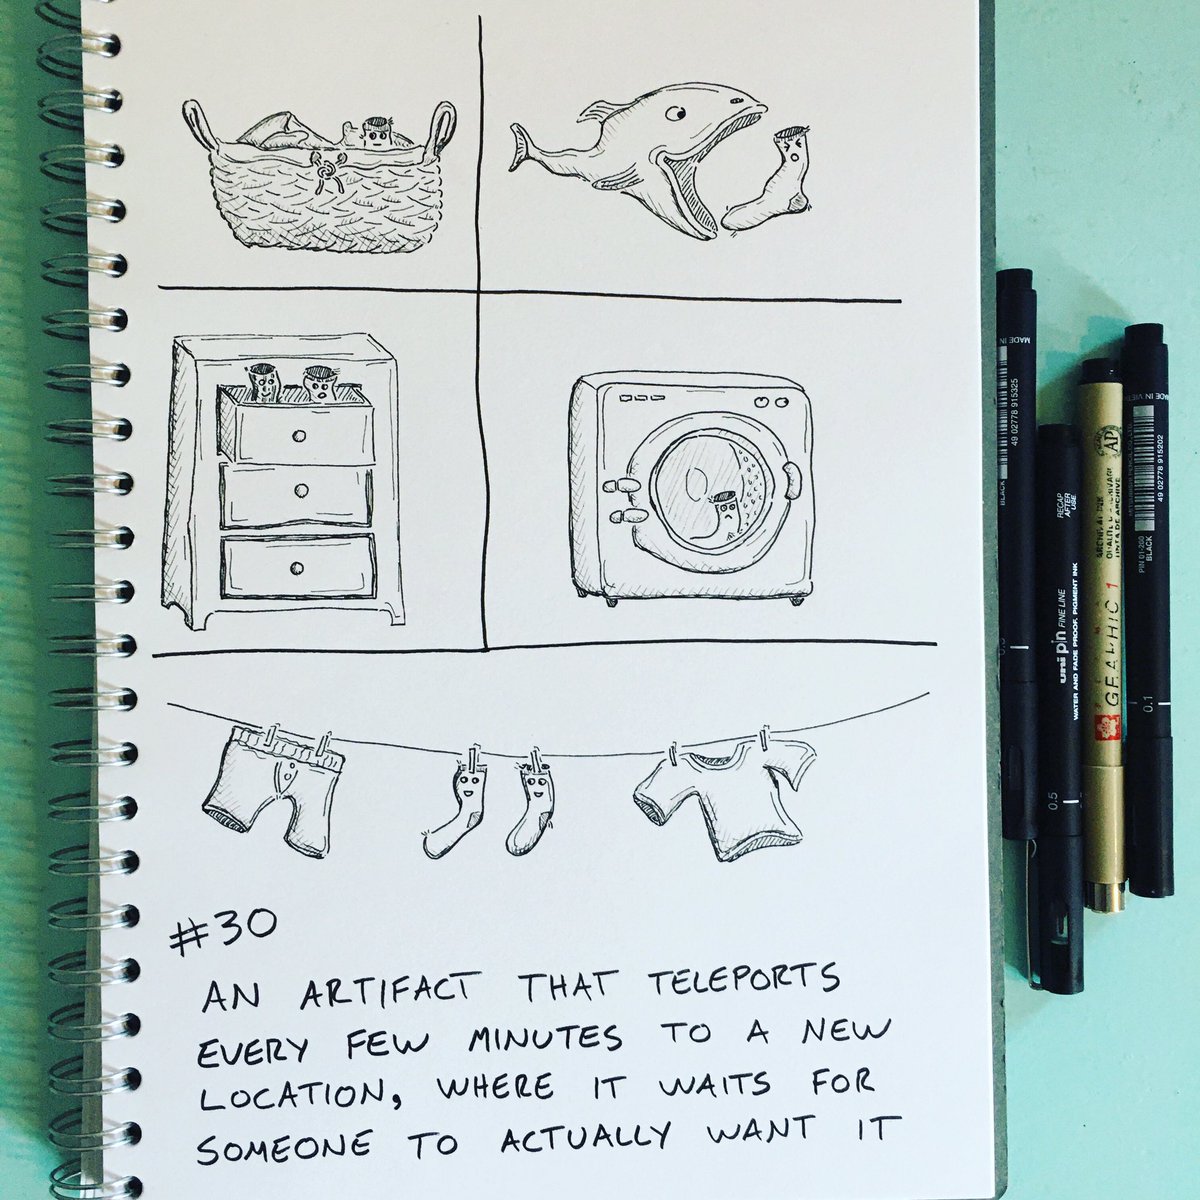 #30
AN ARTIFACT THAT TELEPORTS
EVERY FEW MINUTES TO A NEW
LOCATION, WHERE IT WAITS FOR
SOMEONE TO ACTUALLY WANT IT
MADE IN
49 02778 915325
BLACK
0.5
uni pin FINE LINE
WATER AND FADE PROOF, PIGMENT INK
RECAP
AFTER
USE.
AP
GRAPHIC 1
MADE IN VIET
49 02778 915202
PIN 01-200
BLACK
0.1